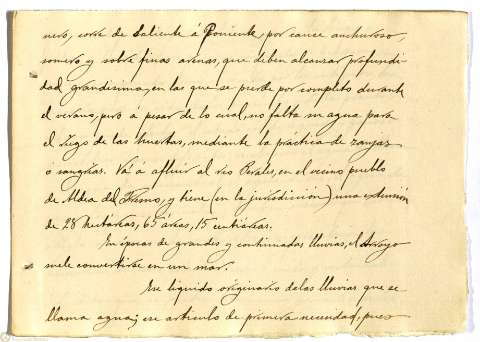 nero, corre de Saliente á Poniente, por cauce anchuroso,
somero y sobre finas arenas, que deben alcanzar profundi-
dad grandísima, en las que se pierde por completo durante
el verano, pero á pesar de lo cual, no falta su agua para
el riego de las huertas, mediante la práctica de zanjas
ó sangrías. Vá á afluir al rio Perales, en el vecino pueblo
de Aldea del Fresno, y tiene (en la jurisdicción) una extensión
de 28 hectáreas, 65 áreas, 15 centiáreas.
En épocas de grandes y continuadas lluvias, el Arroyo
suele convertirse en un mar.
Ese líquido originario de las lluvias que se
llama agua; ese artículo de primera necesidad, pues